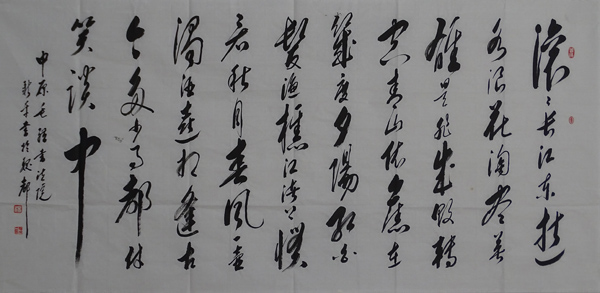 滚滚长江东逝
水浪花淘尽英
雄是非成败转
空青山依舊在
幾度夕陽红白
髮漁樵江渚上慣
看秋月春风一壶
濁酒喜相逢古
今多少事都付
笑谈中
中原毛體書法院
書於殷都